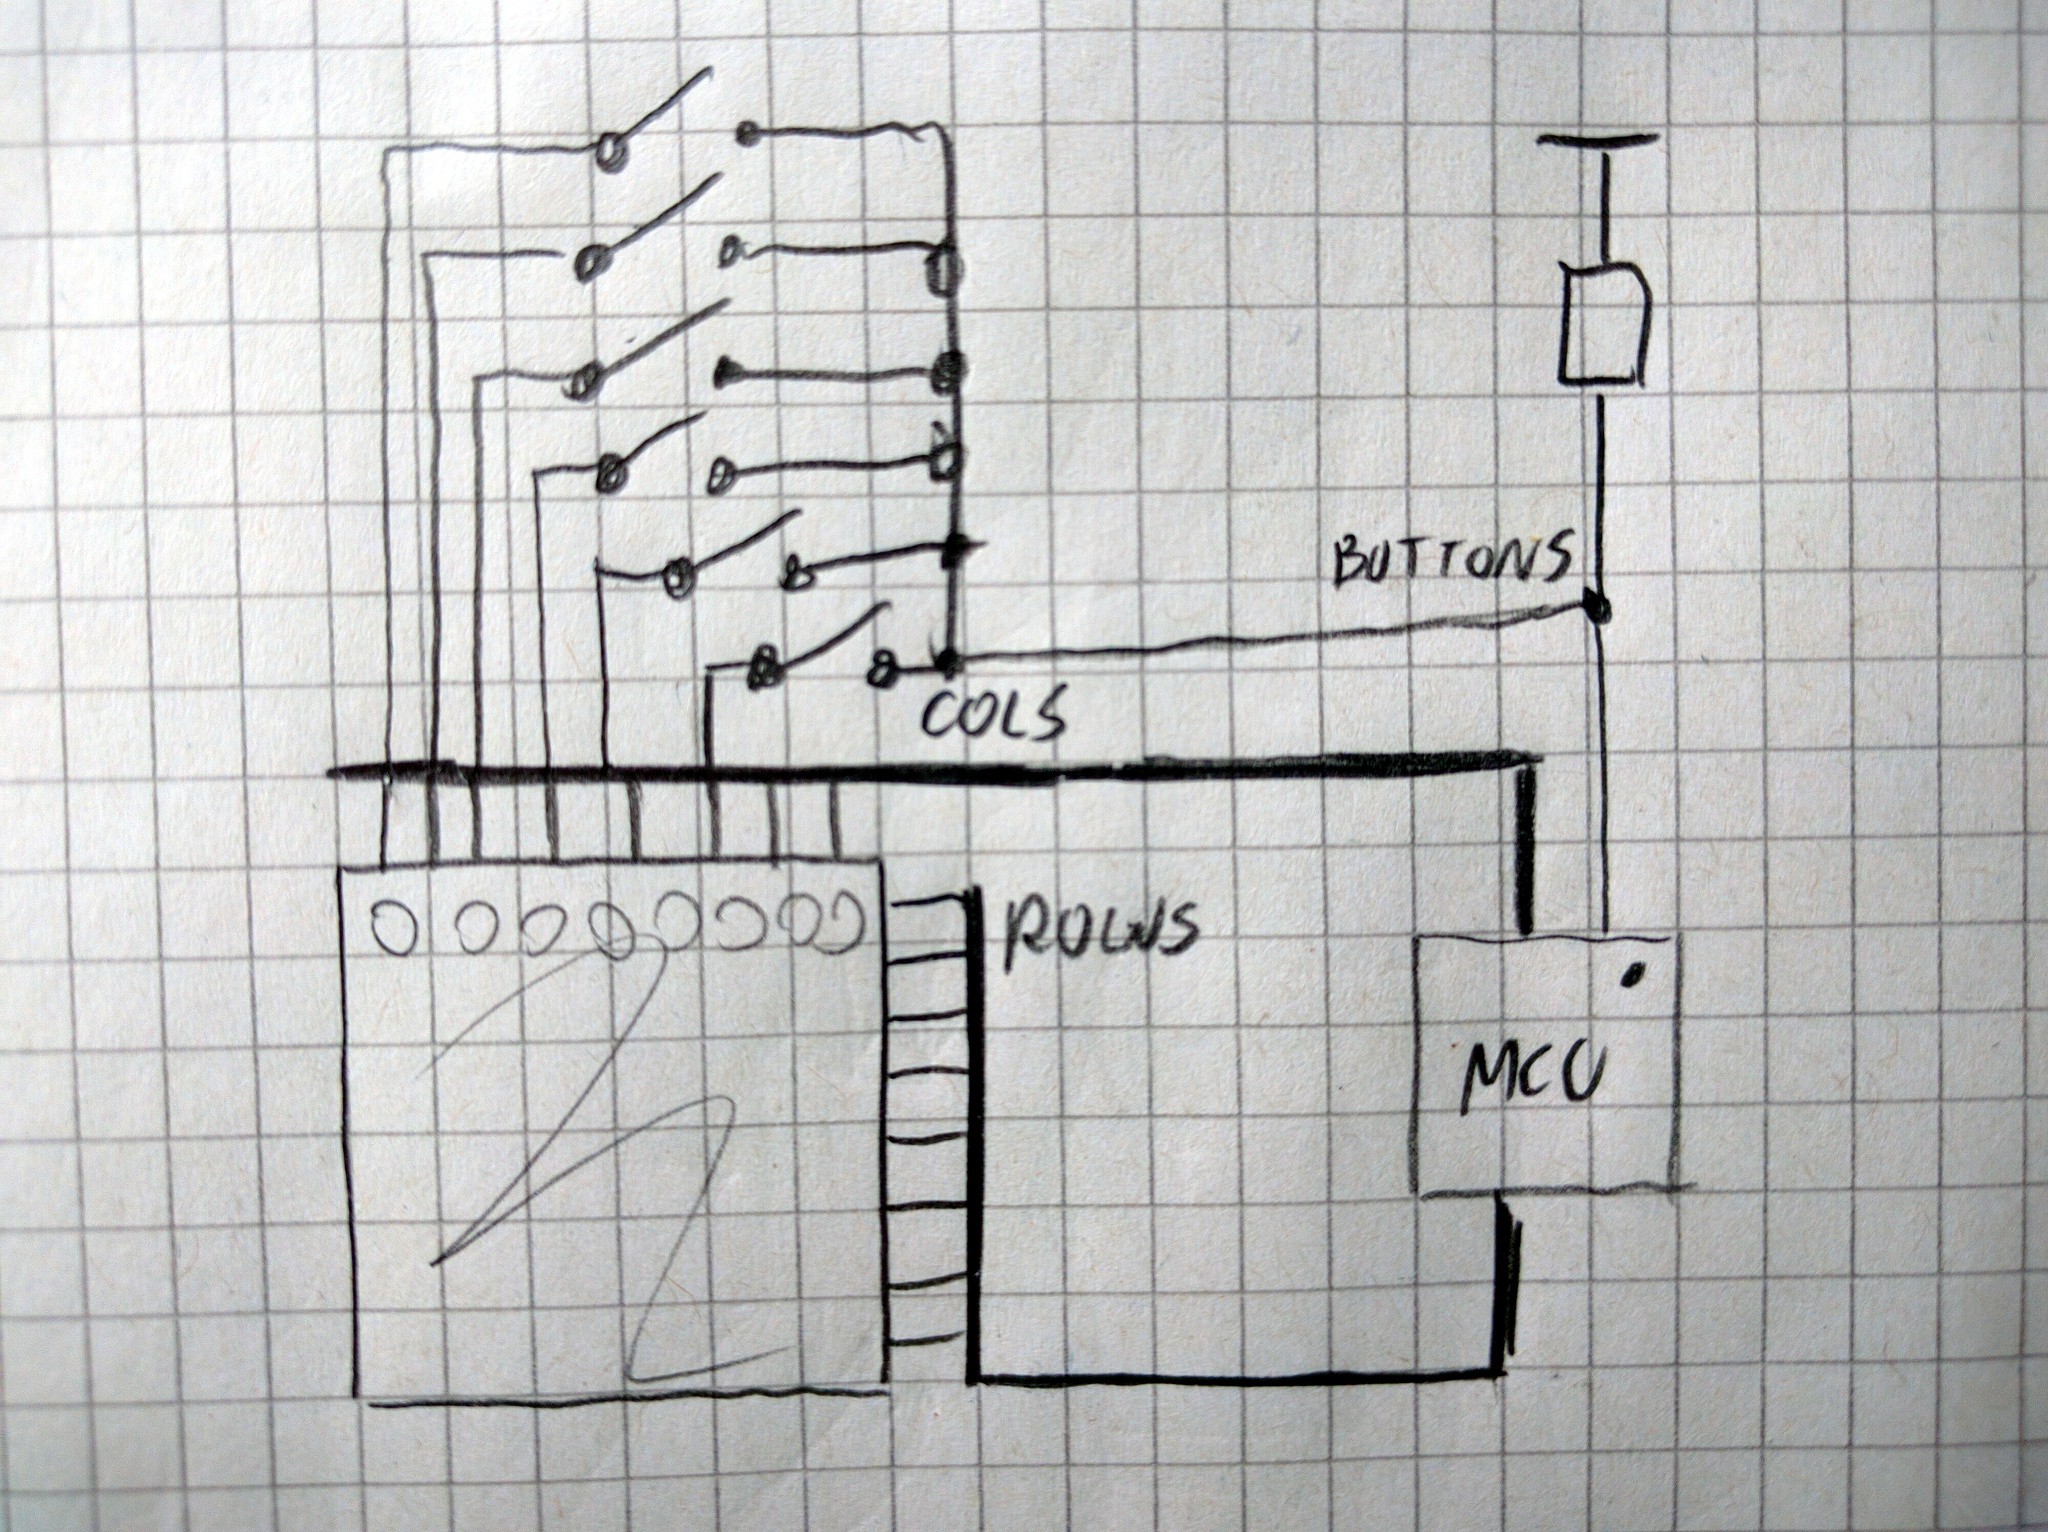 BUTTONS
COLS
ROWS
MCU